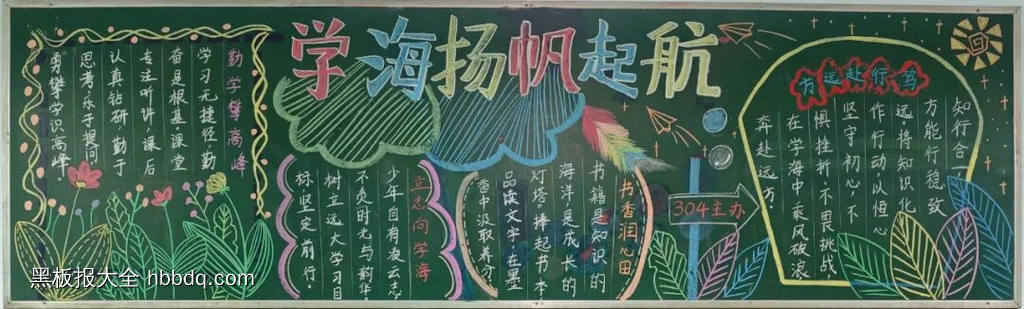 学海扬帆起航
勤学攀高峰
学习无捷径,勤
奋是根基。课堂
专注听讲,课后
认真钻研,勤于
思考,乐于提问
勇攀学识高峰
立志向学海
少年自有凌云志
不负时光与韶华。
树立远大学习目
标,坚定前行。
书香润心田
书籍是知识的
海洋,是成长的
灯塔,捧起书本
品读文字,在墨
香中汲取养分
304主办
笃行赴远方
知行合一
方能行稳致
远,将知识化
作行动,以恒心
坚守初心,不
惧挫折,不畏挑战
在学海中乘风破浪
奔赴远方。
黑板报大全 hbbdq.com